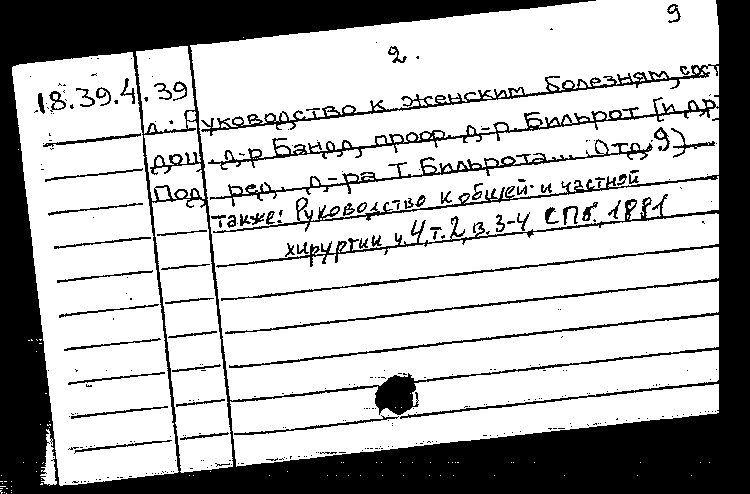 9
2.
18.39.4.39
л.: Руководство к женским болезням, сост
доц. д-р Бандл, проф. д-р. Бильрот [и др
Под ред. д-ра Т. Бильрота... (Отд. 9)
также: Руководство к общей и частной
хирургии, ч. 4, т. 2, в. 3-4. СПб., 1881